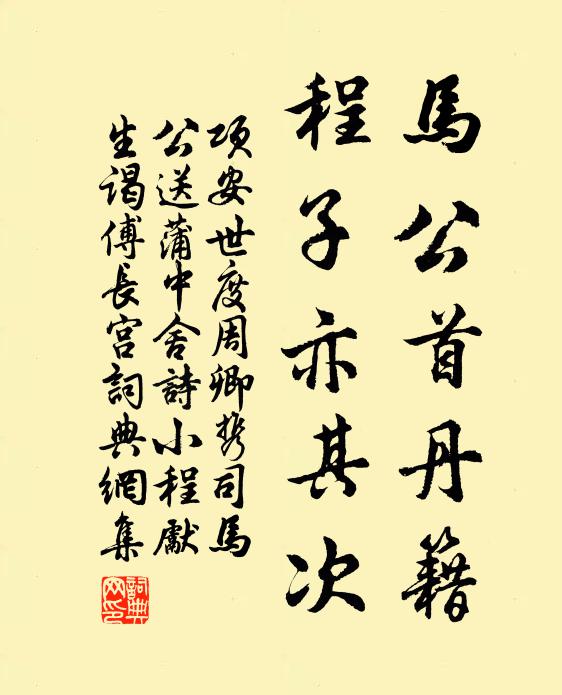 馬公首丹籍
程子亦其次
項安世度周卿携司馬
公送蒲中舍詩小程獻
生謁傅長官詞典網集
詞典网印